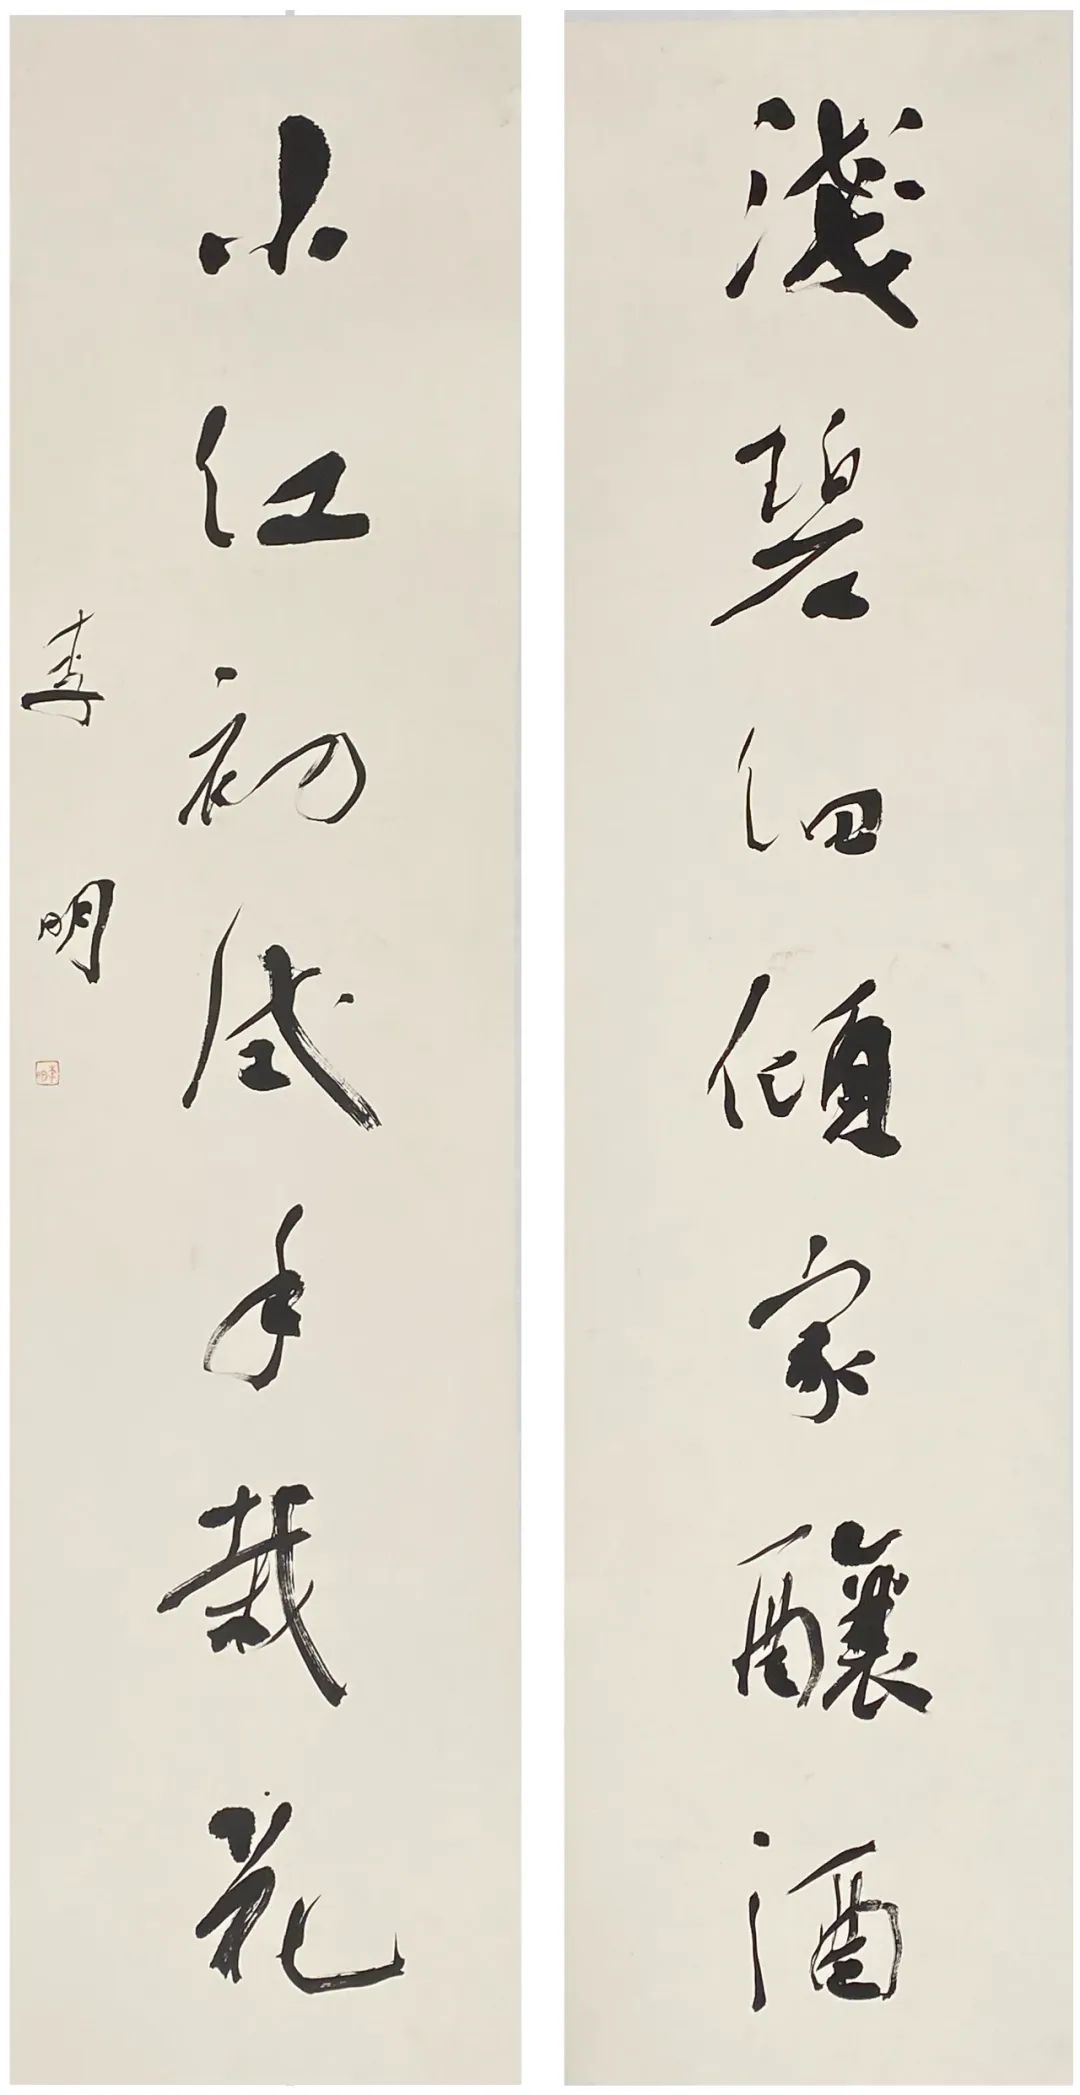 淺碧細傾家釀酒
小紅初試手栽花
李明
李明